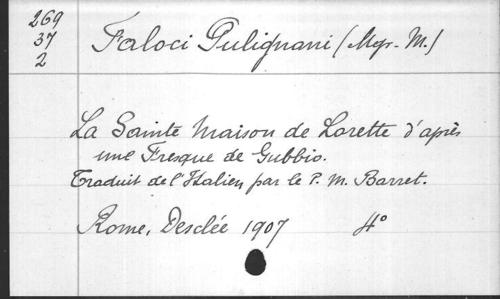 269
37
2
Faloci Pulignani (Mgr. M.)
La Sainte Maison de Lorette d'après
une Fresque de Gubbio.
Traduit de l'Italien par le P. M. Barret.
Rome, Desclée 1907 4°